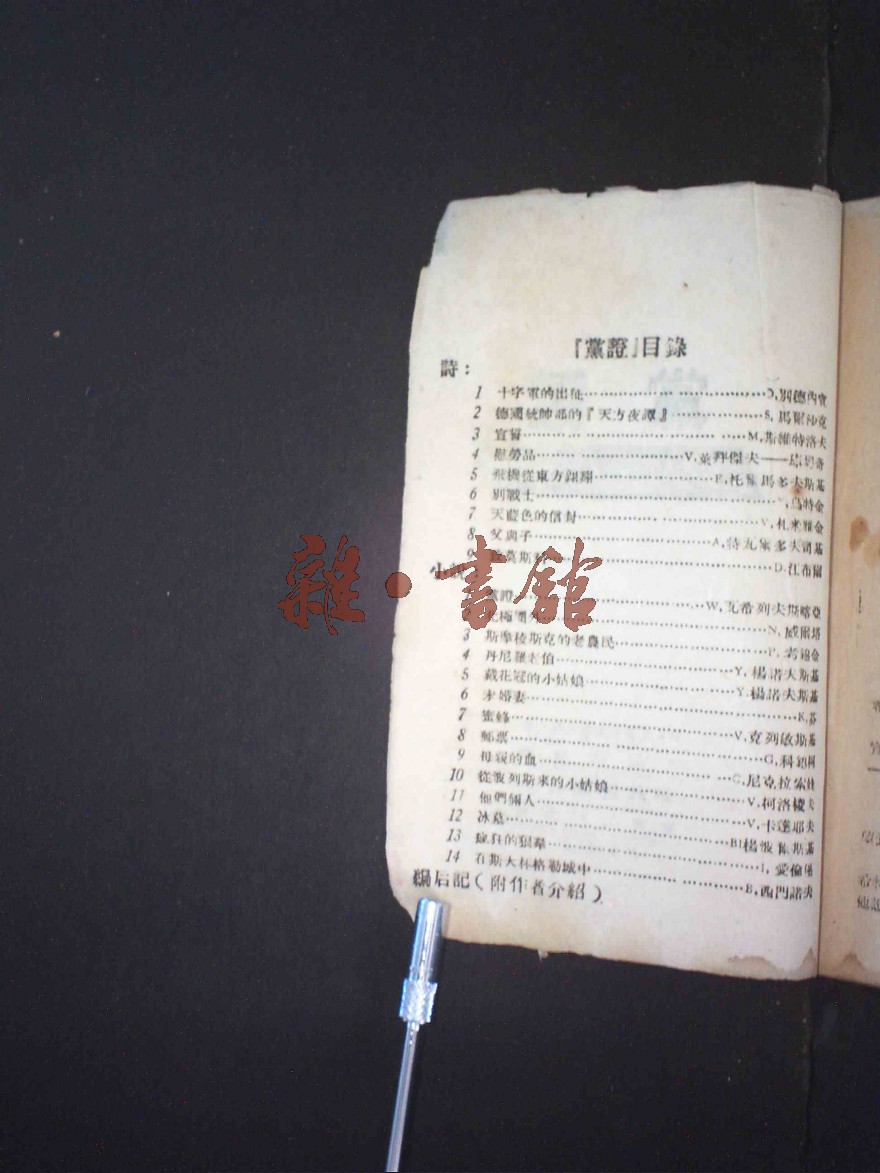 『黨證』目錄
詩：
1 十字軍的出征……D,別德內寶
2 德國統帥部的『天方夜譚』……S,馬爾沙克
3 宣誓……M,斯維特洛夫
4 慰勞品……V,萊拜傑夫——
5 飛機從東方翱翔……E,托爾馬多夫斯基
6 別戰士……烏特金
7 天藍色的信封……V,札米雅金
8 父與子……A,特瓦朵多夫司基
9 莫斯科……D.江布爾
小說：
黨證……W,瓦希列夫斯喀亞
2 北極……N,威爾塔
3 斯摩稜斯克的老農民……P,考錫金
4 丹尼羅老伯……Y,楊諾夫斯基
5 戴花冠的小姑娘……Y.楊諾夫斯基
6 未婚妻……K,芬
7 蜜蜂……V,克列敏斯基
8 郵票……G,科
9 母親的血……G,尼克拉索娃
10 從波列斯來的小姑娘……V,柯洛稜夫
11 他們倆人……V,卡達耶夫
12 冰墓……
13 瘋狂的狼羣……B楊波爾斯基
14 在斯大林格勒城中……I,愛倫堡
B,西門諾夫
編后記（附作者介紹）
雜·書館